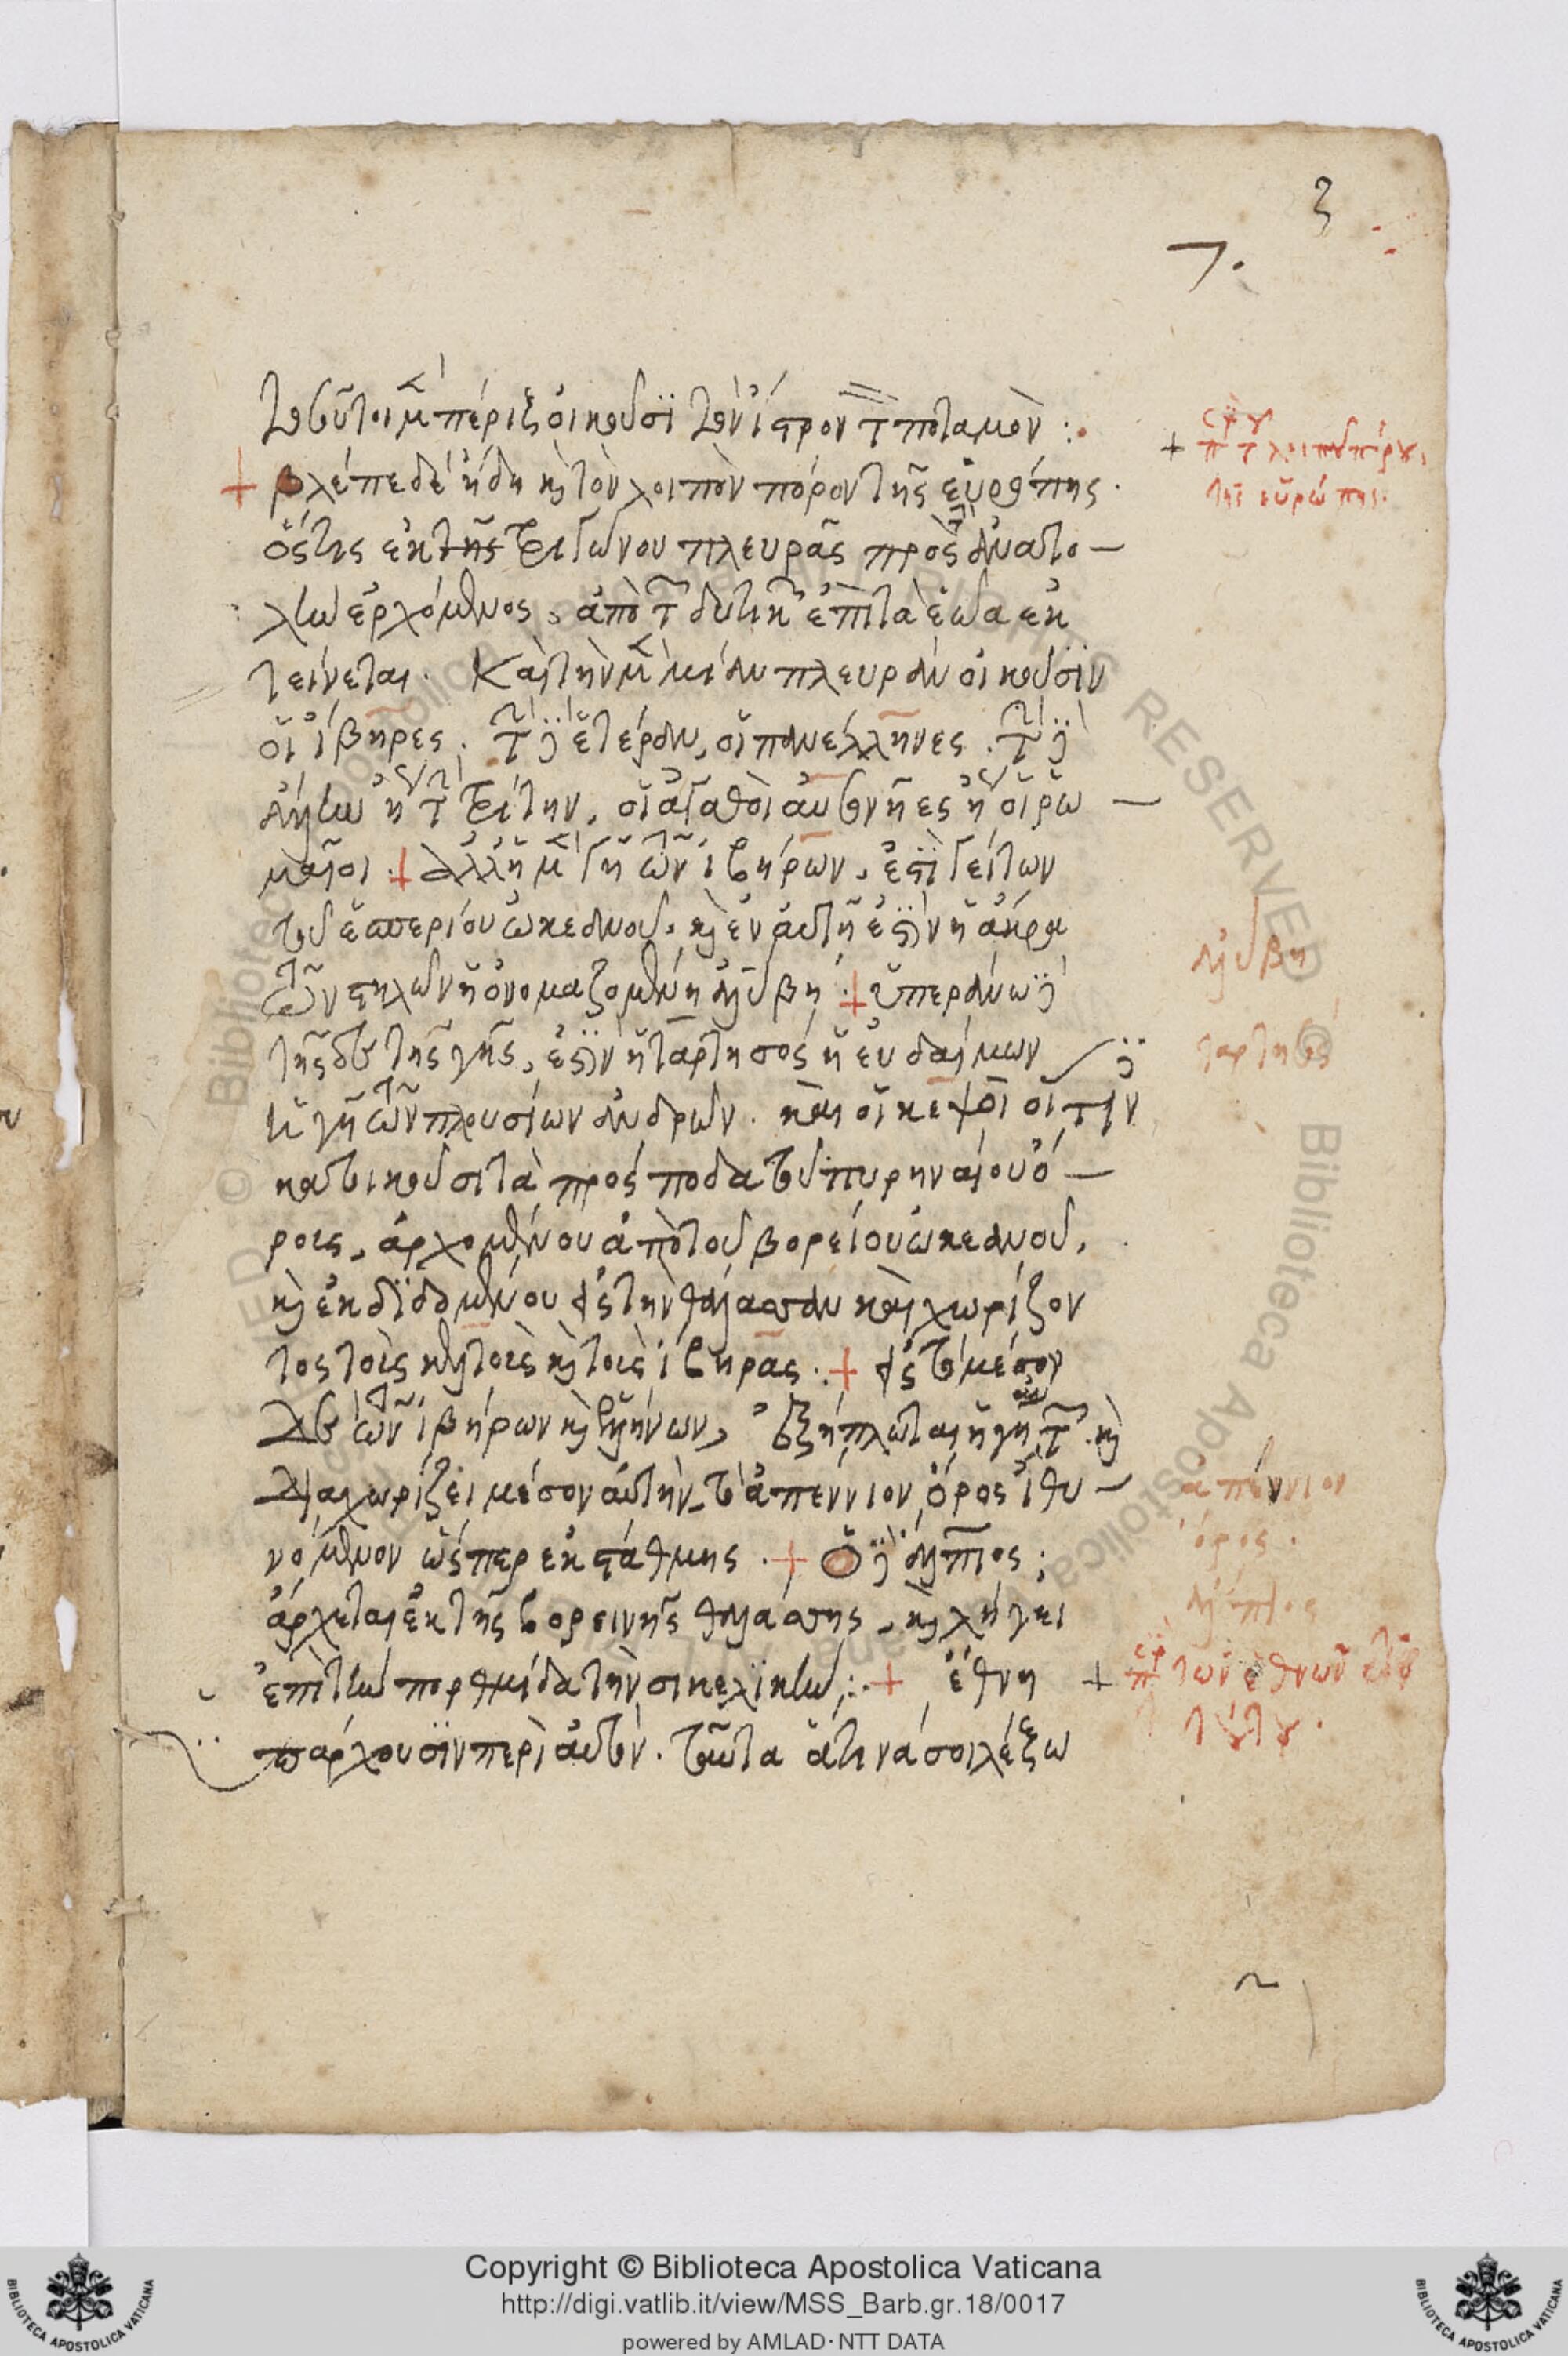 3
7.
τοσοῦτοι μὲν πέριξ οἰκοῦσι τὸν ἴστρον τὸν ποταμὸν :
βλέπε δέ ἤδη καὶ τὸν λοιπὸν πόρον τῆς εὐρώπης.
ὅστις ἐκ τῆς τριγώνου πλευρᾶς πρὸς τὴν ἀνατο
λὴν ἐρχόμενος, ἀπὸ τῶν δυτικῶν ἐπὶ τὰ ἑῶα ἐκ
τείνεται. Καὶ τὴν μὲν μίαν πλευρὰν οἰκοῦσιν
οἱ ἴβηρες. τὴν δὲ ἑτέραν, οἱ πανέλληνες. τὴν δὲ
ἄλλην ἢ τὴν τρίτην, οἱ ἀγαθοὶ αὐσονῆες ἢ οἱ ῥω
μαῖοι + ἀλλ' ἡ μὲν γῆ τῶν ἰβήρων, ἐστὶ γείτων
τοῦ ἑσπερίου ὠκεανοῦ. καὶ ἐν αὐτῇ ἐστὶν ἡ ἄκρα
τῶν στηλῶν ἡ ὀνομαζομένη ἀλύβη + ὑπεράνω δὲ
τῆσδε τῆς γῆς, ἐστὶν ἡ ταρτησὸς ἡ εὐδαίμων
ἡ γῆ τῶν πλουσίων ἀνδρῶν. καὶ οἱ κεμψοὶ οἵτιν
κατοικοῦσι τὰ πρὸς ποδα τοῦ πυρηναίου ὄ
ρους, ἀρχομένου ἀπὸ τοῦ βορείου ὠκεανοῦ,
καὶ ἐκδιδομένου εἰς τὴν θάλασσαν καὶ χωρίζον
τος τοὺς κελτοὺς καὶ τοὺς ἴβηρας. + εἰς τὸ μέσον
δὲ τῶν ἰβήρων καὶ ἑλλήνων, ἐξήπλωται ἡ γῆ τῶν καὶ
διαχωρίζει μέσον αὐτὴν τὸ ἀπέννιον ὄρος ἰθυ
νόμενον ὥσπερ ἐκ στάθμης. + Ὁ δὲ ἄλπιος;
ἄρχεται ἐκ τῆς βορεινῆς θαλάσσης, καὶ λήγει
ἐπὶ τὴν πορθμίδα τὴν σικελικὴν : + ἔθνη
παρχουσιν περὶ αὐτὸν. ταῦτα ἅτινά σοι λέξω
+ περὶ τοῦ λοιποῦ πόρου
τῆς εὐρώπης.
ἀλύβη
ταρτησός
ἀπέννιον
ὄρος.
+ περὶ τῶν ἐθνῶν
τούτου.
Copyright © Biblioteca Apostolica Vaticana
http://digi.vatlib.it/view/MSS_Barb.gr.18/0017
powered by AMLAD · NTT DATA
BIBLIOTECA APOSTOLICA VATICANA
BIBLIOTECA APOSTOLICA VATICANA